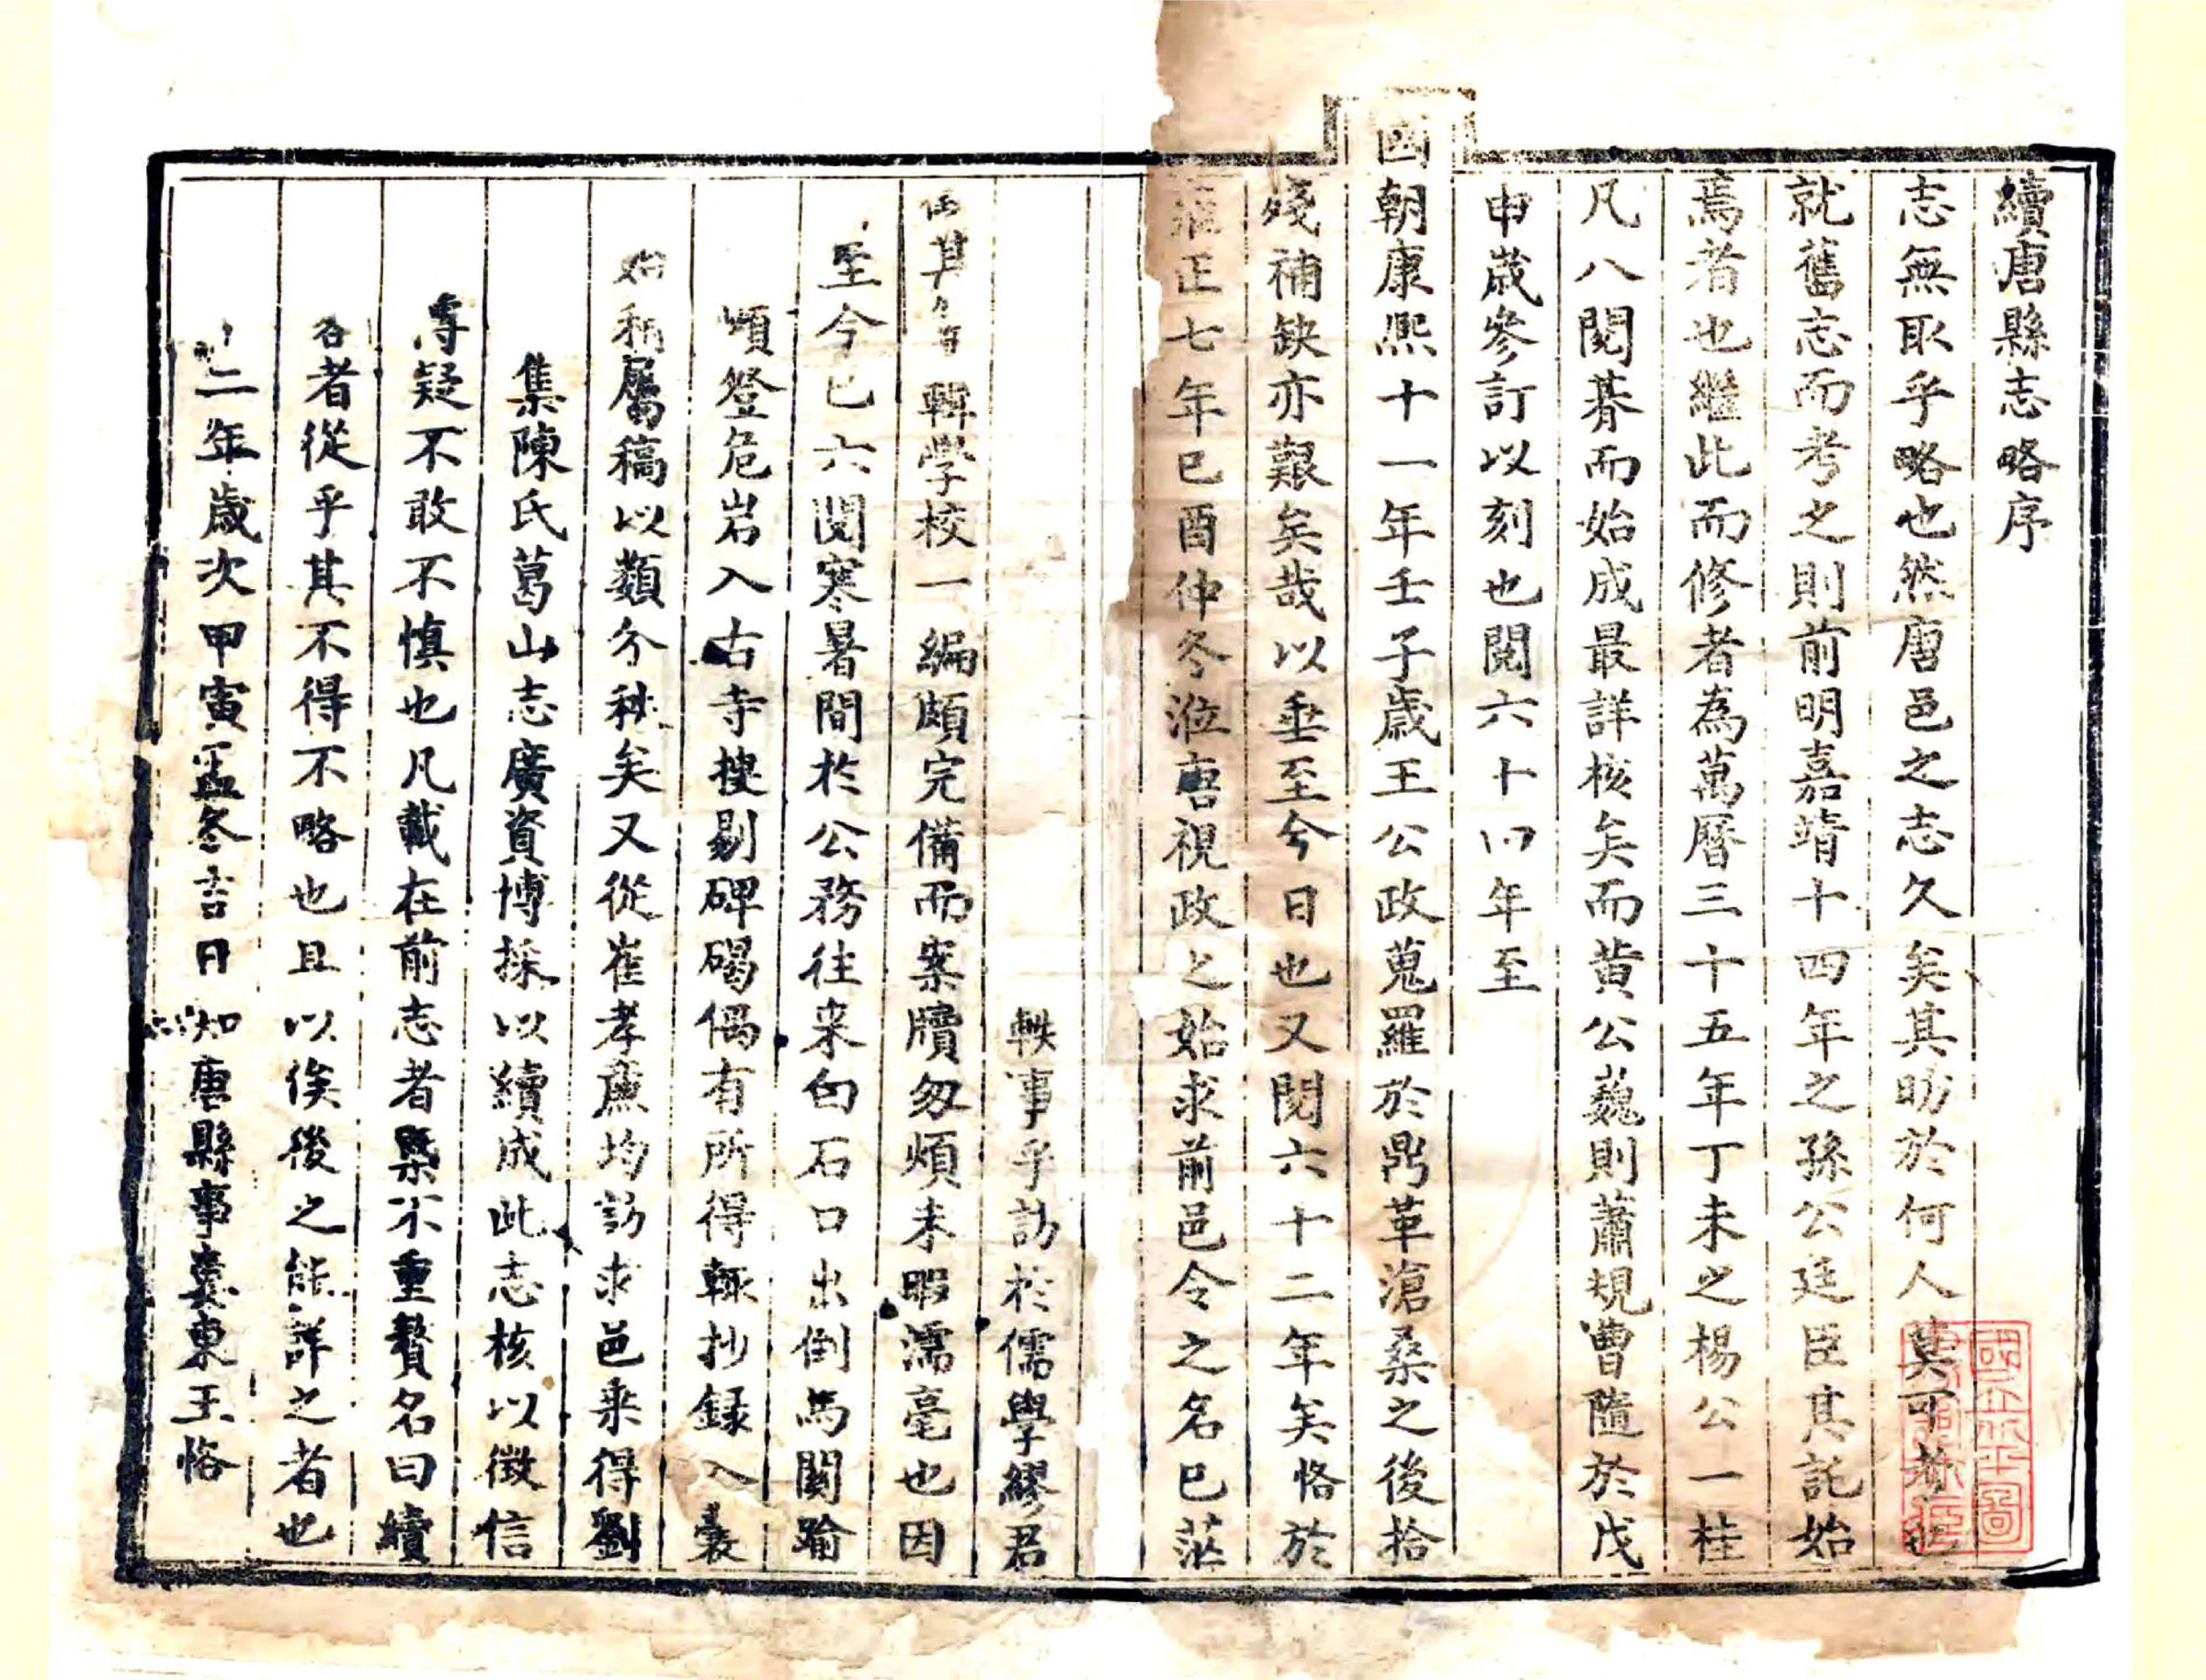 續唐縣志略序
志無取乎略也然唐邑之志久矣其昉於何人莫可考也
就舊志而考之則前明嘉靖十四年之孫公廷臣其託始
焉者也繼此而修者為萬曆三十五年丁未之楊公一桂
凡八閱朞而始成最詳核矣而黄公巍則蕭規曹隨於戊
申歲參訂以刻也閱六十四年至
國朝康熙十一年壬子歲王公政蒐羅於鼎革滄桑之後拾
殘補缺亦艱矣哉以垂至今日也又閱六十二年矣恪於
雍正七年己酉仲冬涖唐視政之始求前邑令之名已茫
軼事乎訪於儒學繆君
輯學校一編頗完備而案牘匆煩未暇濡毫也因
至今已六閱寒暑間於公務往来白石口出倒馬關踰
登危岩入古寺搜剔碑碣偶有所得輒抄録入囊
稱屬稿以類分秩矣又從崔孝廉均訪求邑乘得劉
集陳氏葛山志廣資博採以續成此志核以徵信
疑不敢不慎也凡載在前志者槩不重贅名曰續
者從乎其不得不略也且以俟後之能詳之者也
二年歲次甲寅孟冬吉日知唐縣事婁東王恪
國立北平圖